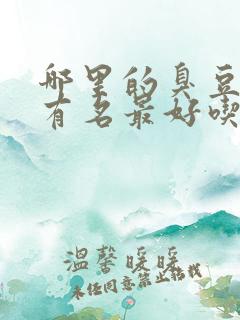 哪里的臭豆
有名最好喫
温馨暖暖
未经同意禁止转载